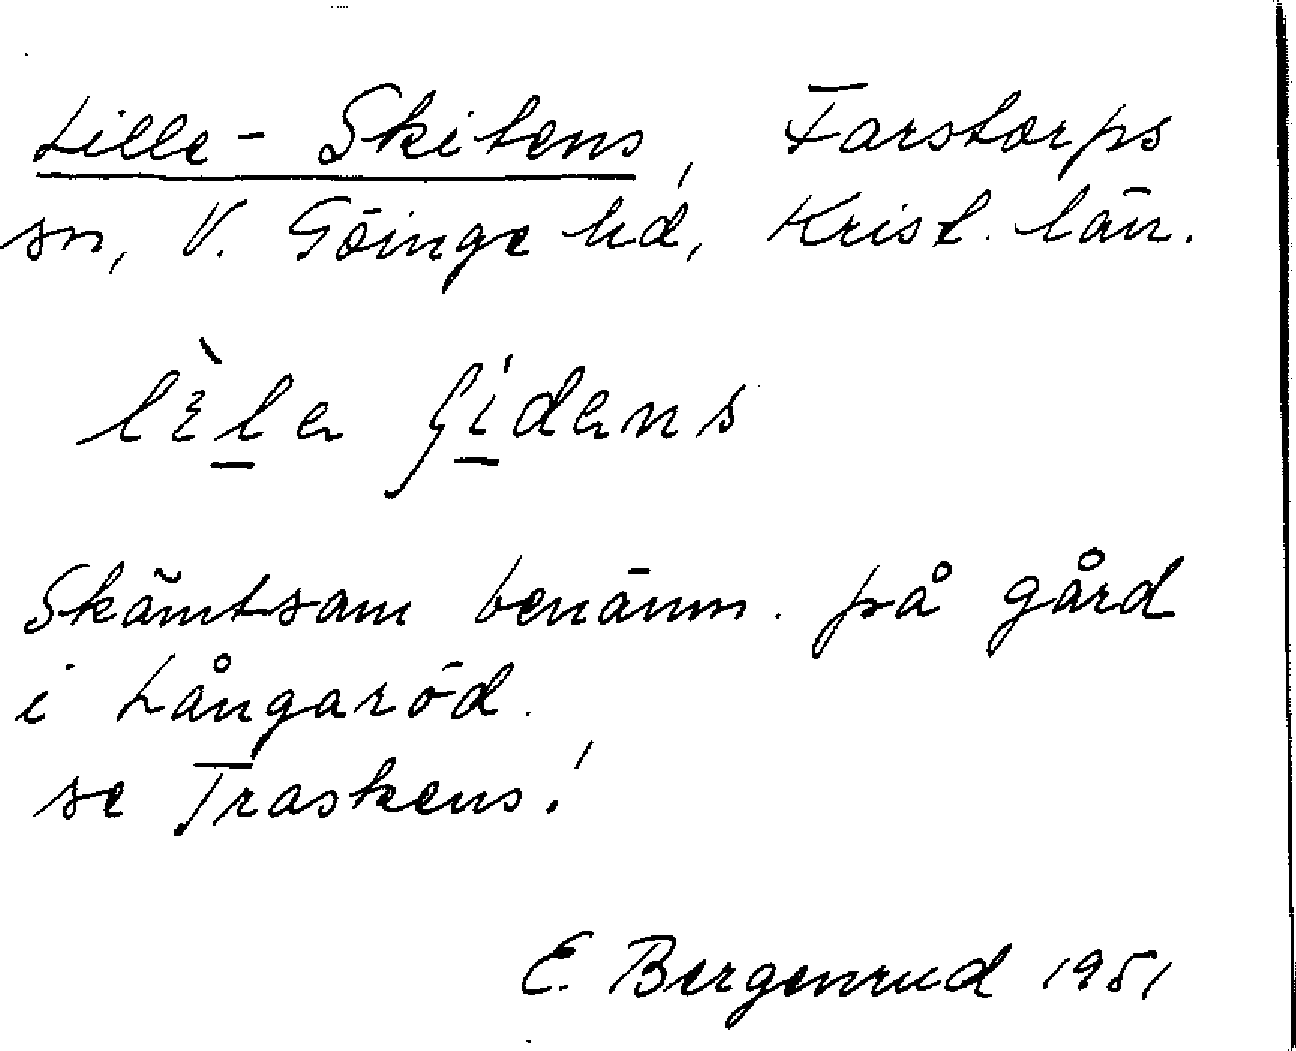 Lille-Skitens, Farstorps
sn, V. Göinge hd, Krist. län.
Skämtsam benämn. på gård
i Långaröd.
se Traskens!
E. Bergenrud 1951